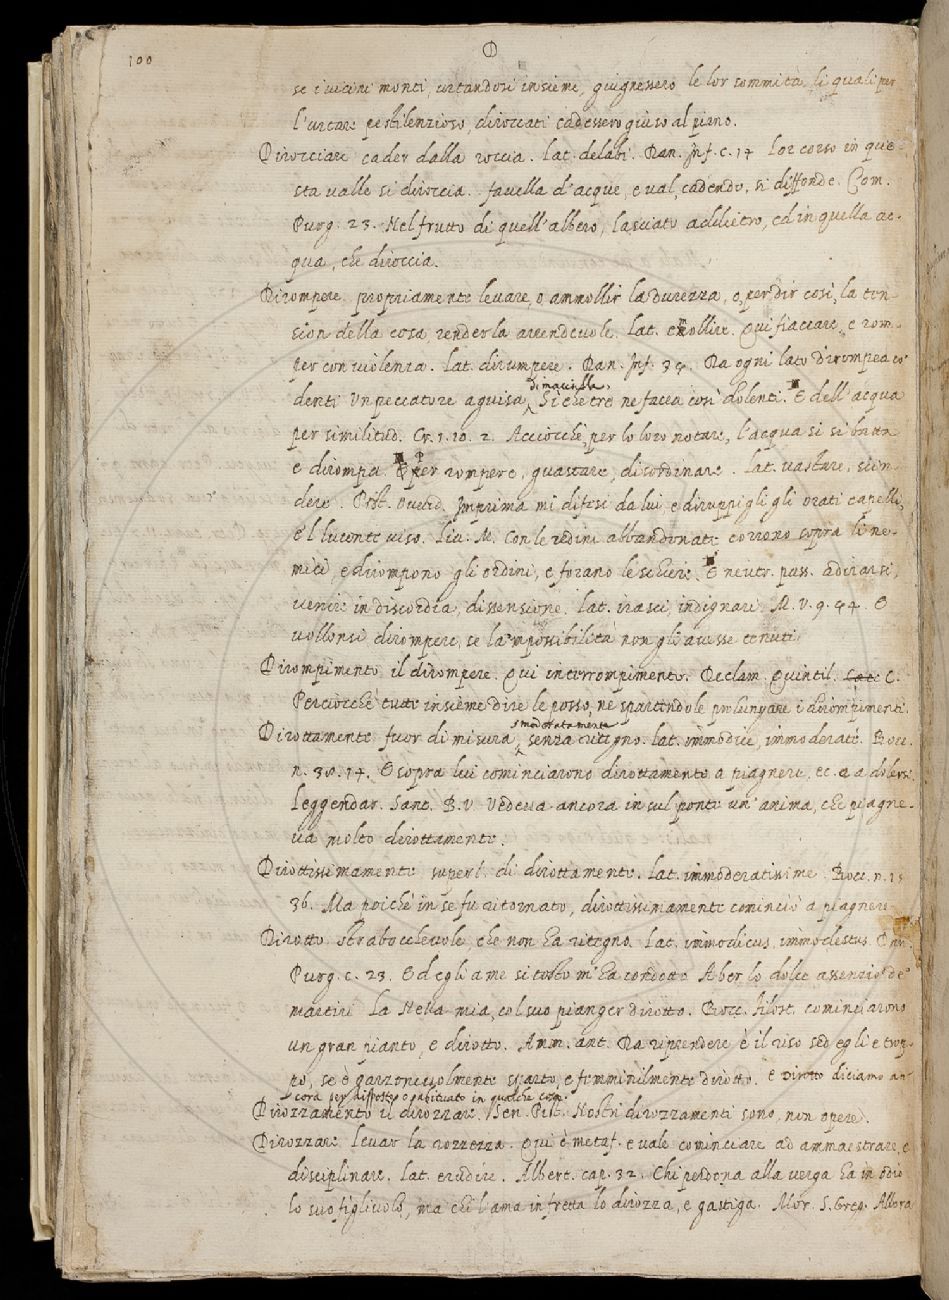 100
D
se i vicini monti, urtandosi insieme, giugnessero le lor sommità, li quali per
l'urtare pestilenzioso, diroccati cadessero giuso al piano.
Dirocciare cader dalla roccia. Lat. delabi. Dan. Inf. c. 14 Lor corso in que
sta valle si diroccia. favella d'acque, e val, cadendo, si diffonde. Com.
Purg. 23. Nel frutto di quell'albero, lasciato addietro, ed in quella ac-
qua, che diroccia.
Dirompere propriamente levare, o ammollir la durezza, o, per dir così, la ten-
sion della cosa, renderla arrendevole. Lat. emollire. Qui fiaccare, e rom-
per con violenza. Lat. dirumpere. Dan. Inf. 34. Da ogni lato dirompea co'
di maciulla,
denti Un peccatore a guisa Sì che tre ne facea così dolenti. E dell'acqua
per similitud. Cr. 1. 10. 2. Acciocchè, per lo loro notare, l'acqua si si bratti
e dirompa. E per rompere, guastare, disordinare. Lat. vastare, scin-
dere. Pist. Ovvid. Imprima mi difesi da lui e diruppigli gli orati capelli,
e 'l lucente viso. Liv. M. Con le redini abbandonate corrono sopra li ne-
mici, e dirompono gli ordini, e forano le schiere. E neutr. pass. adirarsi,
venire in discordia, dissensione. Lat. irasci, indignari. M. V. 9. 94. E
vollonsi dirompere, se la 'mpossibilità non gli avesse tenuti
Dirompimento il dirompere. Qui interrompimento. Declam. Quintil. C.
Perciocchè tutte insieme dire le posso, ne spartendole prolungare i dirompimenti.
smoderatamente
Dirottamente fuor di misura, senza ritegno. Lat. immodice, immoderate. Bocc.
n. 38. 14. E sopra lui cominciarono dirottamente a piagnere, ec. e a dolersi
Leggendar. Sant. B. V. Vedeva ancora in sul ponte un'anima, che piagne-
va molto dirottamente.
Dirottissimamente superl. di dirottamente. Lat. immoderatissime. Bocc. n. 15
36. Ma poichè in se fu ritornato, dirottissimamente cominciò a piagnere
Dirotto strabocchevole, che non ha ritegno. Lat. immodicus, immodestus. Dan.
Purg. c. 23. Ed egli a me si tosto m'ha condotto A ber lo dolce assenzio de'
martiri La Nella mia, col suo pianger dirotto. Bocc. Filost. cominciarono
un gran pianto, e dirotto. Amm. ant. Da riprendere è il riso sed egli è trop-
po, se è garzonevolmente sparto, e femminilmente dirotto. e Dirotto diciamo an-
cora per disposto, o habituato in qualche cosa.
Dirozzamento il dirozzare. Sen. Pist. Nostri dirozzamenti sono, non opere.
Dirozzare Levar la rozzezza. Qui è metaf. e vale cominciare ad ammaestrare, e
disciplinare. Lat. erudire. Albert. cap. 32. Chi perdona alla verga ha in odio
lo suo figliuolo, ma chi l'ama in fretta lo dirozza, e gastiga. Mor. S. Greg. Allora